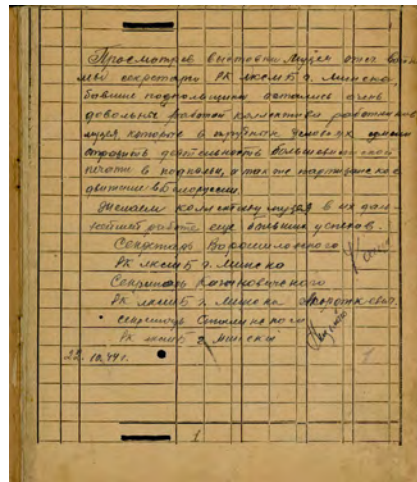 Просмотрев выставку музея
секретари РК ЛКСМБ г. Минска,
бывшие подпольщики остались очень
довольны работой коллектива работников
музея, которое в трудных условиях сумело
отразить деятельность большевистской
печати в подполье, а также партизанское
движение в Белоруссии.
Желаем коллективу музея в их даль-
нейшей работе еще больших успехов.
Секретарь Ворошиловского
РК ЛКСМБ г. Минска
Секретарь Кагановического
РК ЛКСМБ г. Минска
секретарь Сталинского
РК ЛКСМБ г. Минска
22. 10.44 г.